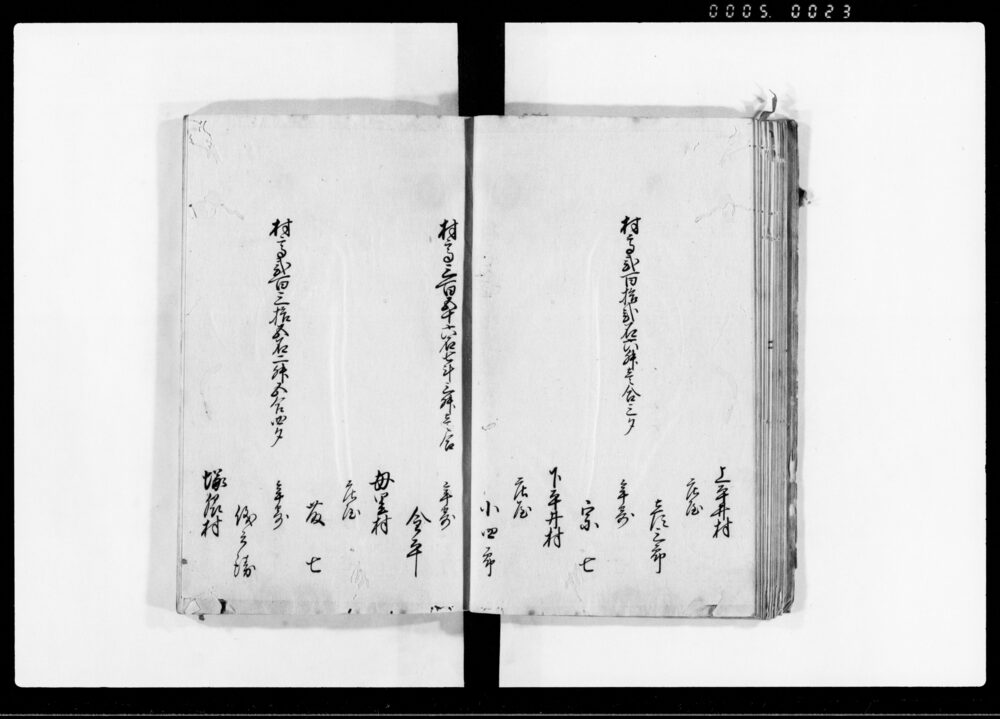 0005 0023
上平井村
庄屋
彦三郎
年寄
宗七
村高弐百拾弐石八升壱合三夕
下平井村
庄屋
小四郎
年寄
金平
村高三百五十六石七斗三升壱合
母里村
庄屋
藤七
年寄
儀三勝
村高弐百三拾五石二升五合四夕
塚脇村